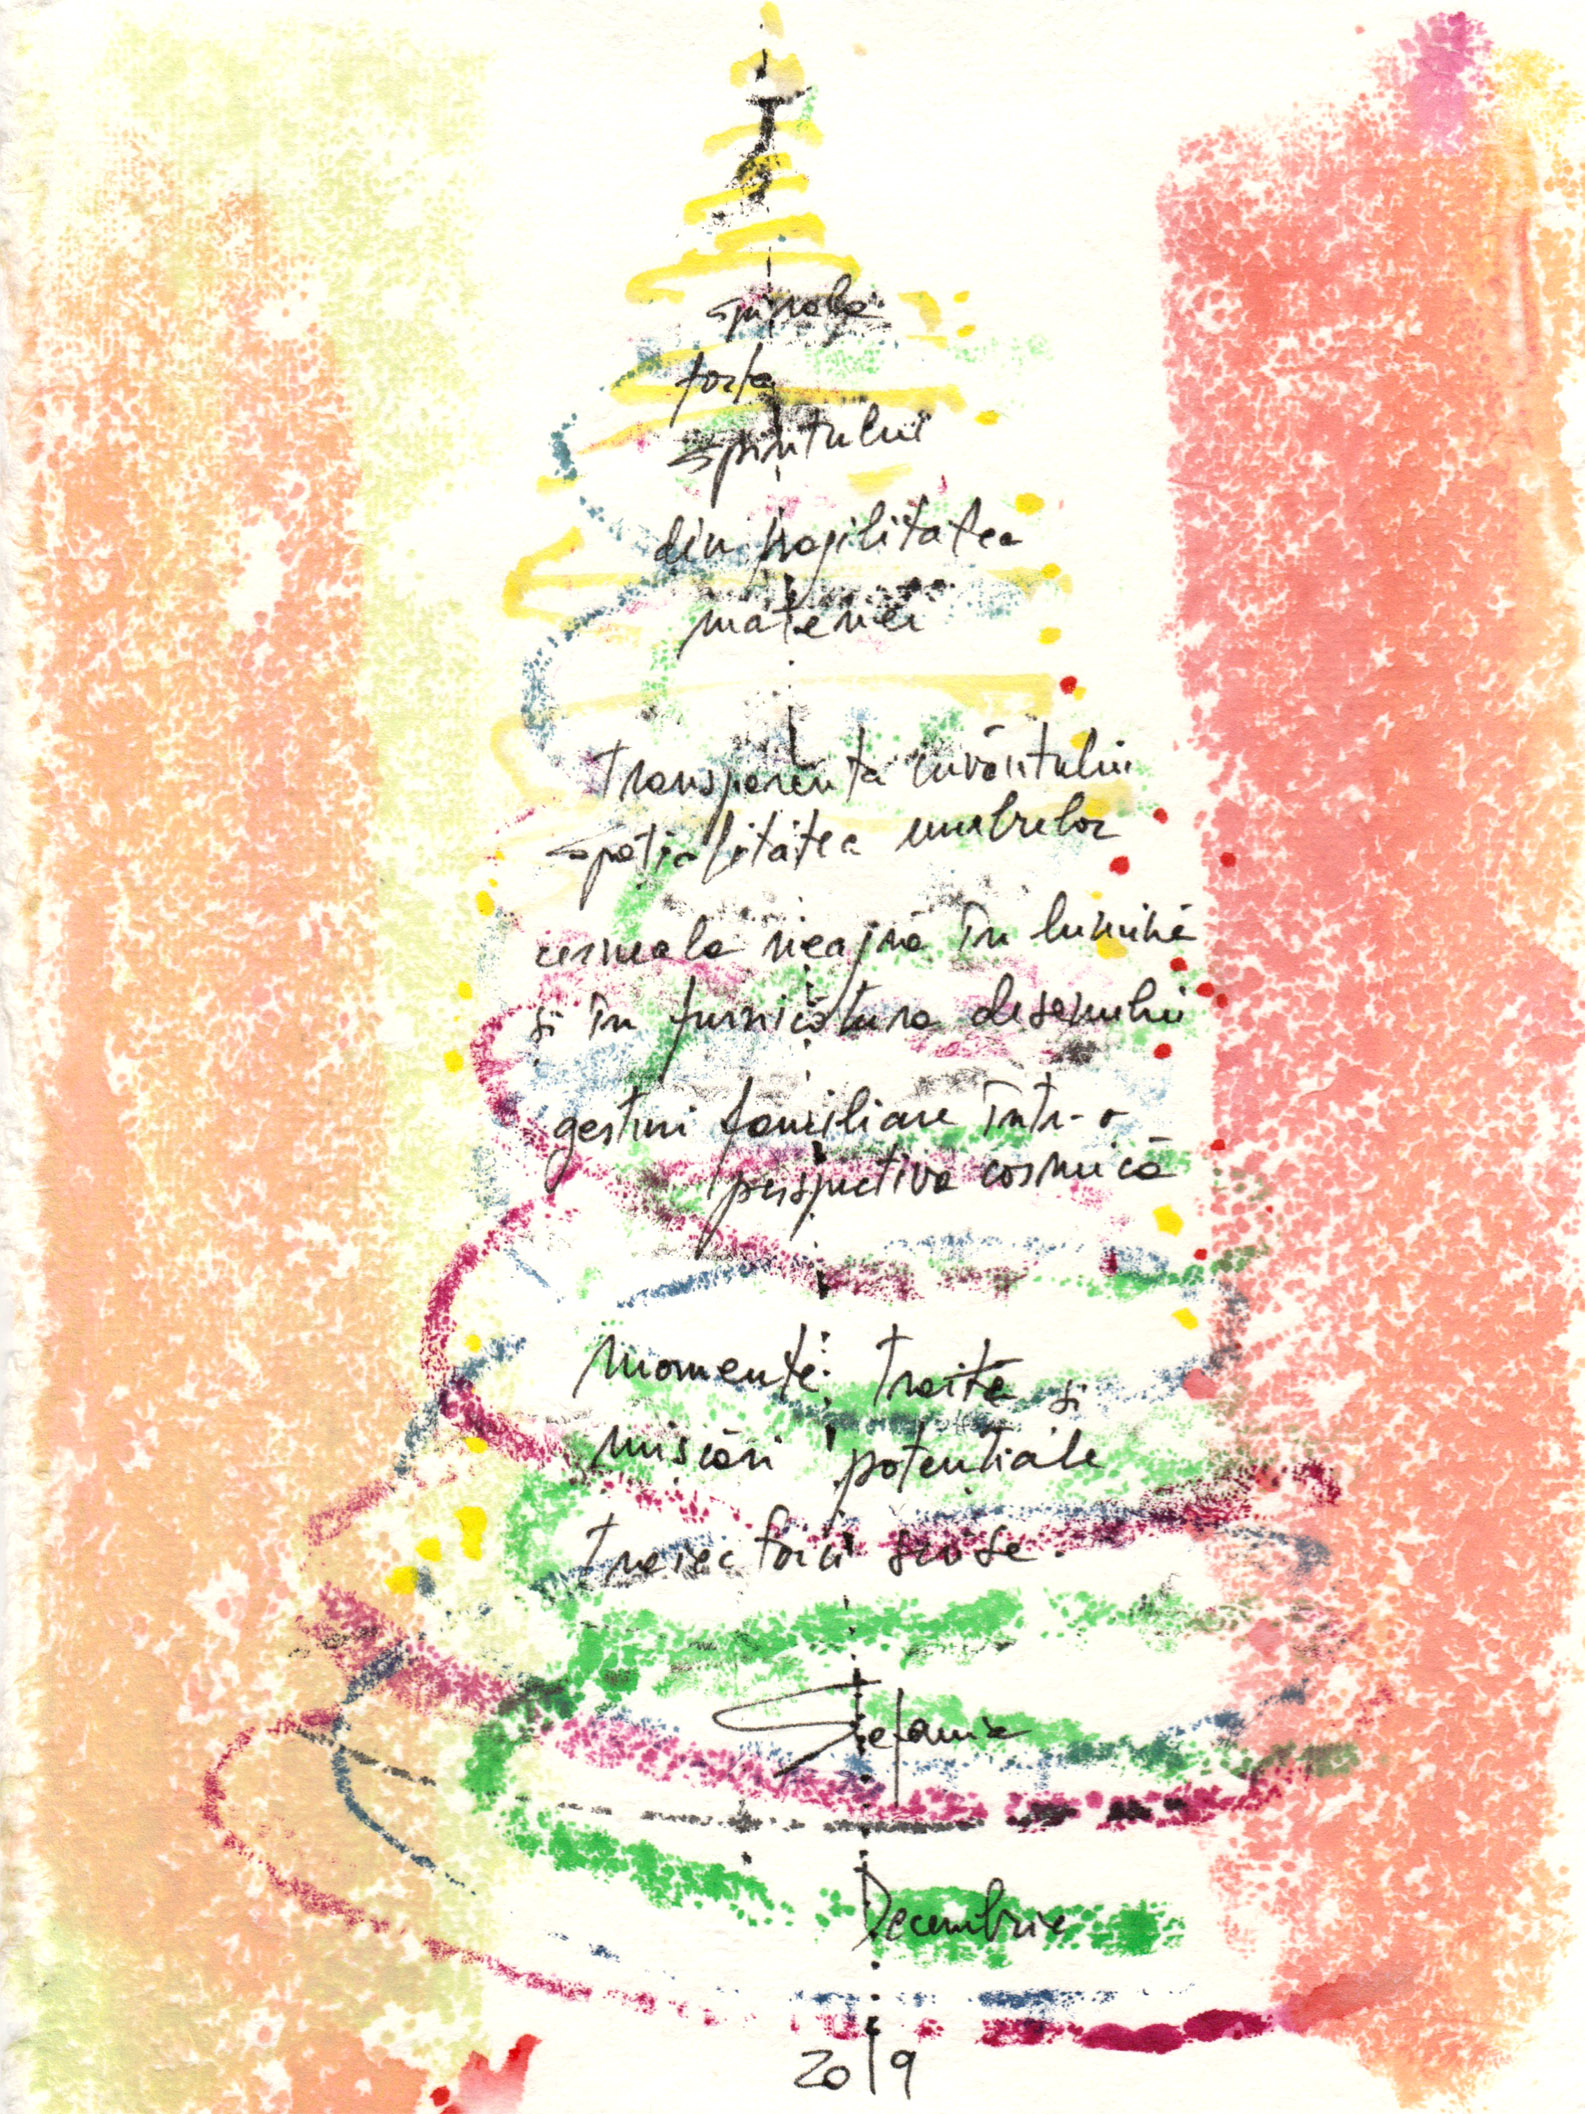 spirala
forța
spiritului
din fragilitatea
materiei
Transparența cuvântului
spațialitatea umbrelor
cerneala neagră în lumină
și în furnicătura desenului
gesturi familiare într-o
perspectiva cosmică
momente traite și
mișcări potențiale
traiectorii scrise.
Stefania
Decembrie
2019